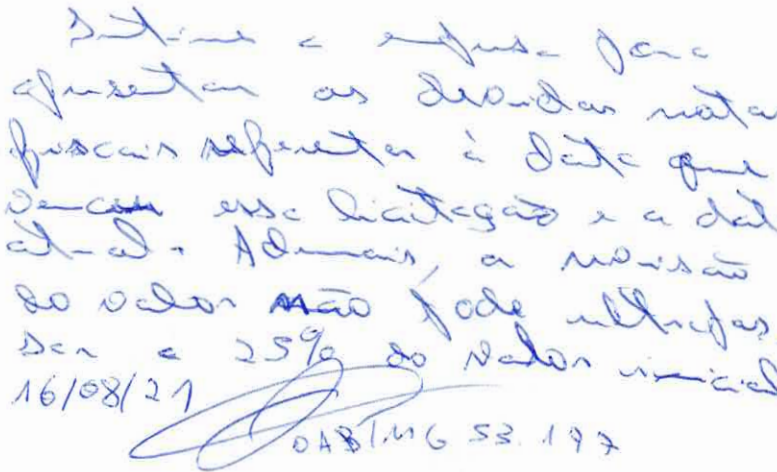 Intime a empresa para
apresentar as devidas nota
fiscais referentes à data que
venceu essa licitação e a dat
atual. Ademais, a revisão
do valor não pode ultrapas
sar a 25% do valor inicial
16/08/21
OAB/MG 53.197